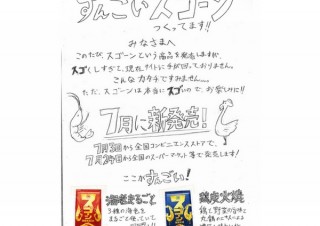 すんごいスゴーン
つくってます!!
みなさまへ
このたび、スゴーンという商品を発売しますが、
スゴくしすぎて、現在サイトに手が回っておりません。
こんなカタチですみません。。。
ただ、スゴーンは本当にスゴいので、お楽しみに!!
7月に新発売!
7月3日から全国コンビニエンスストアで、
7月24日から全国のスーパーマーケット等で発売します!
ここがすんごい!
海老まるごと
3種の海老を
まるごと使っていて
スゴーン
鶏炭火焼
鶏と野菜の旨味と
スゴーン